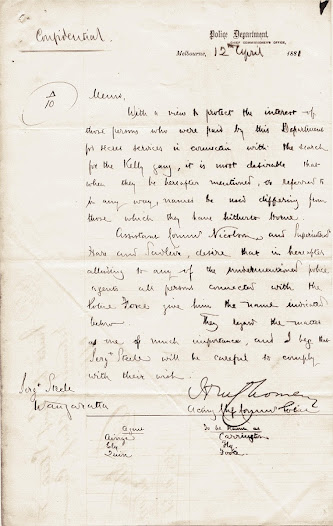 Confidential
Police Department,
CHIEF COMMISSIONER'S OFFICE,
Melbourne, 12th April 1881
10
Memo,
With a view to protect the interest of
those persons who were paid by this Department
for secret services in connection with the search
for the Kelly gang, it is most desirable that
when they be hereafter mentioned, or referred to
in any way, names be used differing from
those which they have hitherto borne.
Assistant Commr Nicolson, and Superintend
Hare and Sadleir, desire that in hereafter
alluding to any of the undermentioned police
agents all persons connected with the
Police Force give him the name indicated
below. They regard the matter
as one of much importance, and I beg that
Sergt Steele will be careful to comply
with their wish.
Sergt Steele
Wangaratta
Acting Chf Commr Police
Agent To be known as
Carrington
Foote